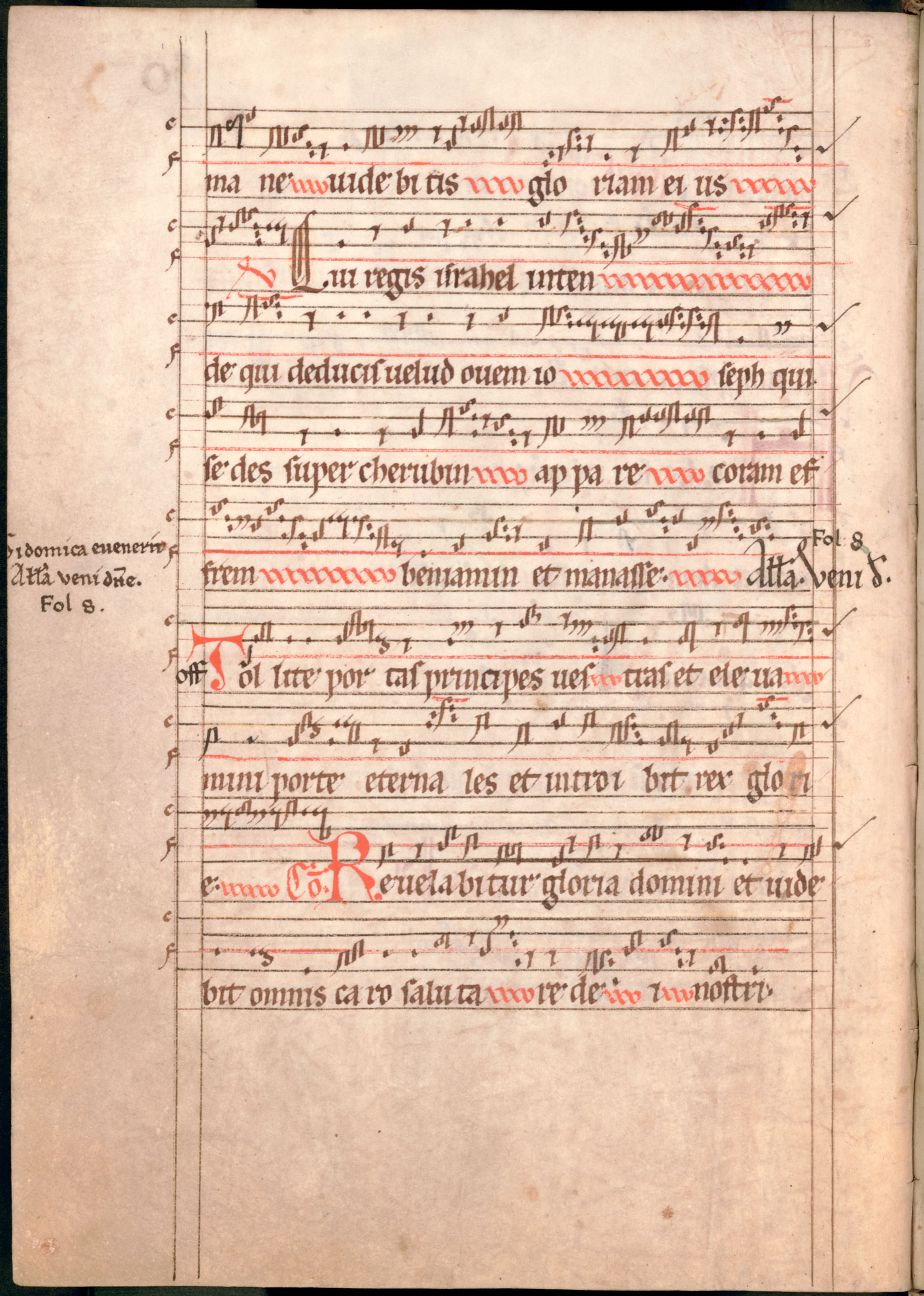 ma ne uidebitis glo riam ei us
V Qui regis israhel inten
de qui deducis uelud ouem io seph qui
se des super cherubin ap pa re coram ef
frem beniamin et manasse. All'a. Veni d.
Fol 8
Si domica evenerit
All'a veni dne.
Fol 8.
off Tol lite por tas principes ues tras et ele ua
mini porte eterna les et introi bit rex glo ri
e. Co. Reuelabitur gloria domini et uide
bit omnis ca ro saluta re de i nostri.